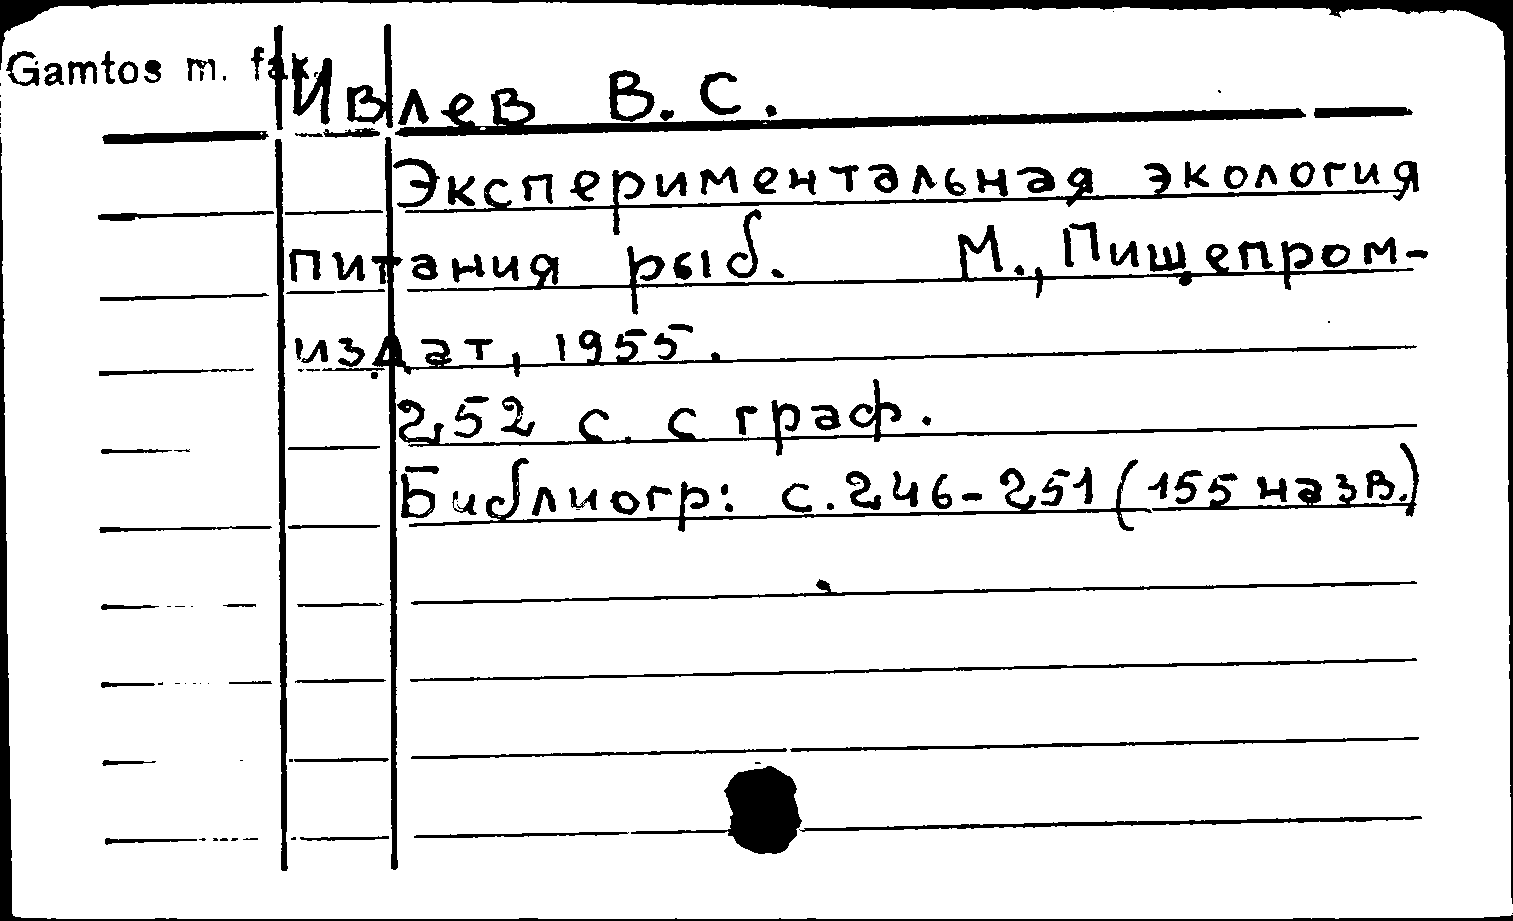 Gamtos m. fak.
Ивлев В. С.
Экспериментальная экология
питания рыб. М., Пищепром-
издат, 1955.
252 с. с граф.
Библиогр: с. 246-251 (155 назв.)